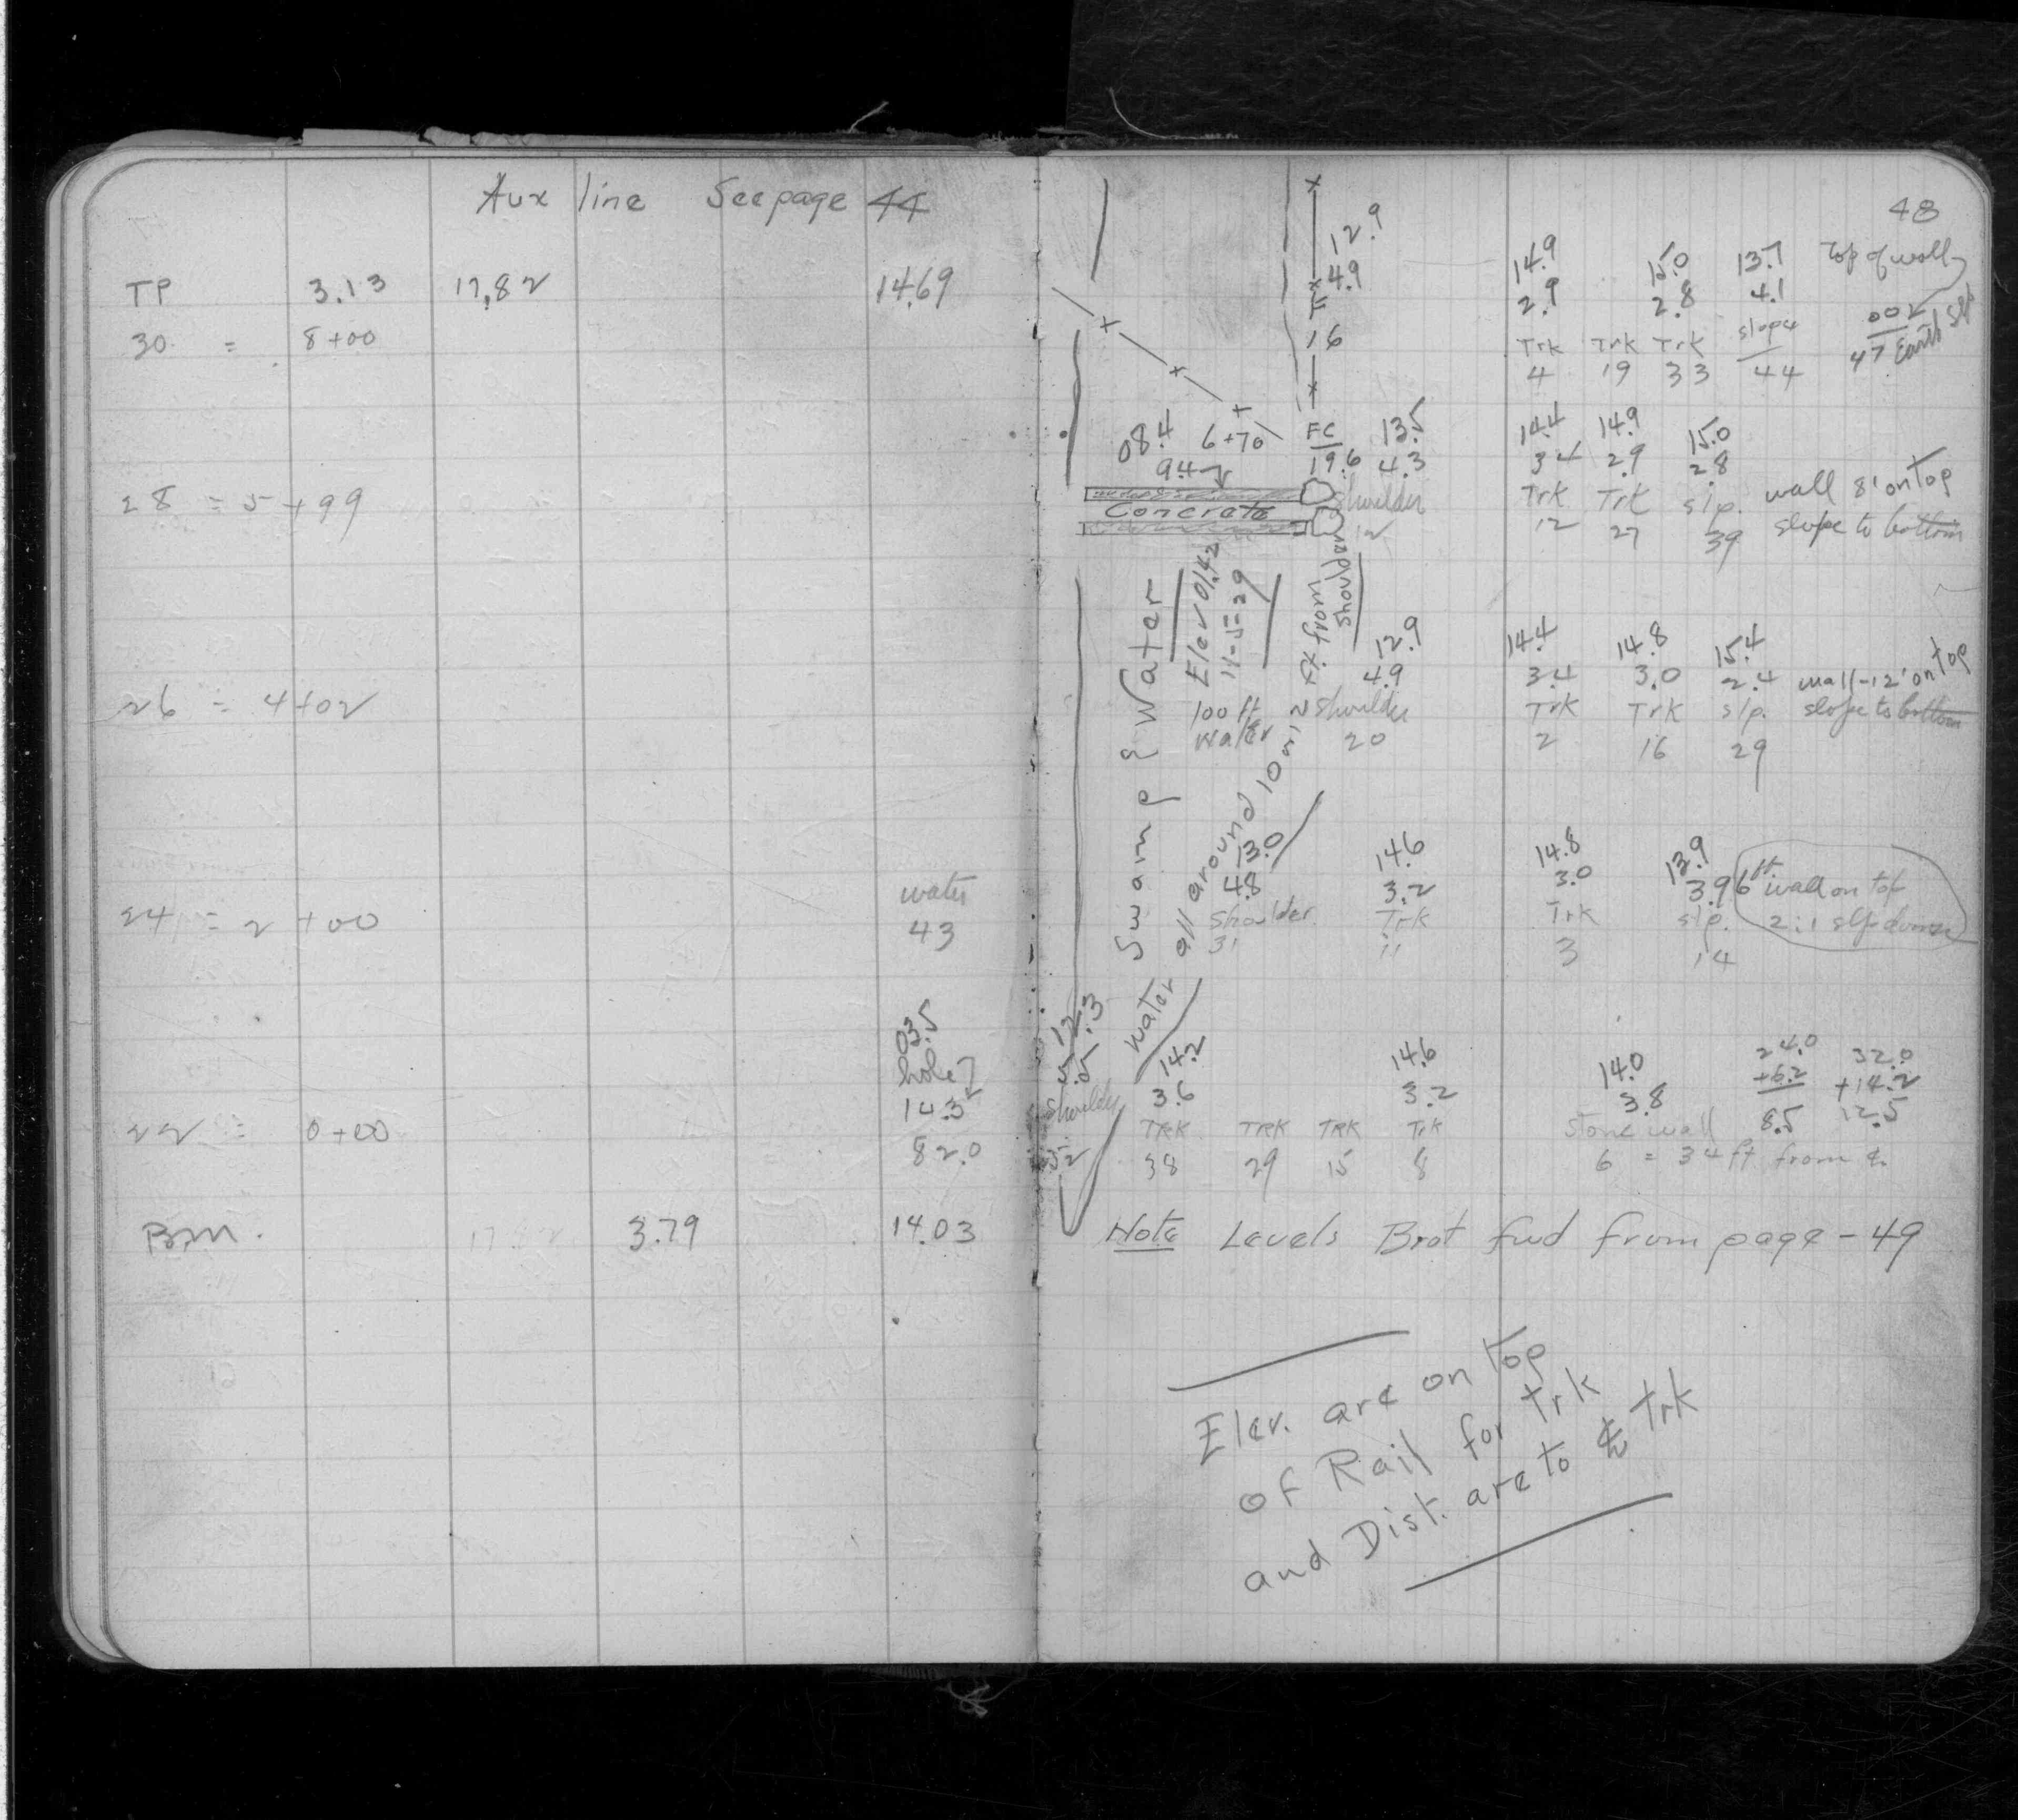 Aux line See page 44
TP 3.13 17.82 14.69
30 = 8+00
28 = 5+99
26 = 4+02
water
24 = 2+00 43
03.5
hole
14.3
22 = 0+00 82.0
BM. 17.82 3.79 14.03
48
12.9 14.9 15.0 13.7 Top of wall
4.9 2.9 2.8 4.1 002
16 Trk Trk Trk slope 47 Earth Slp
4 19 33 44
08.4 6+70 FC 13.5 14.4 14.9 15.0
9.4 19.6 4.3 3.4 2.9 2.8
Concrete shoulder Trk Trk slp. wall 8' on top
12 12 27 39 slope to bottom
Swamp & Water
Elev 01.42
11-5=29
shoulder
12.9 14.4 14.8 15.4
4.9 3.4 3.0 2.4 wall-12' on top
100 ft shoulder Trk Trk slp. slope to bottom
water 20 2 16 29
all around
13.0 14.6 14.8 13.9
4.8 3.2 3.0 3.9 6 ft wall on top
shoulder Trk Trk slp. 2:1 slp down
31 11 3 14
Water
12.3 14.2 14.6 14.0 24.0 32.0
5.5 3.6 3.2 3.8 +6.2 +14.2
shoulder TRK TRK TRK Trk Stone wall 8.5 12.5
52 38 29 15 8 6 = 34 ft from ℄
Note Levels Brot fwd from page - 49
Elev. are on top
of Rail for Trk
and Dist. are to ℄ Trk